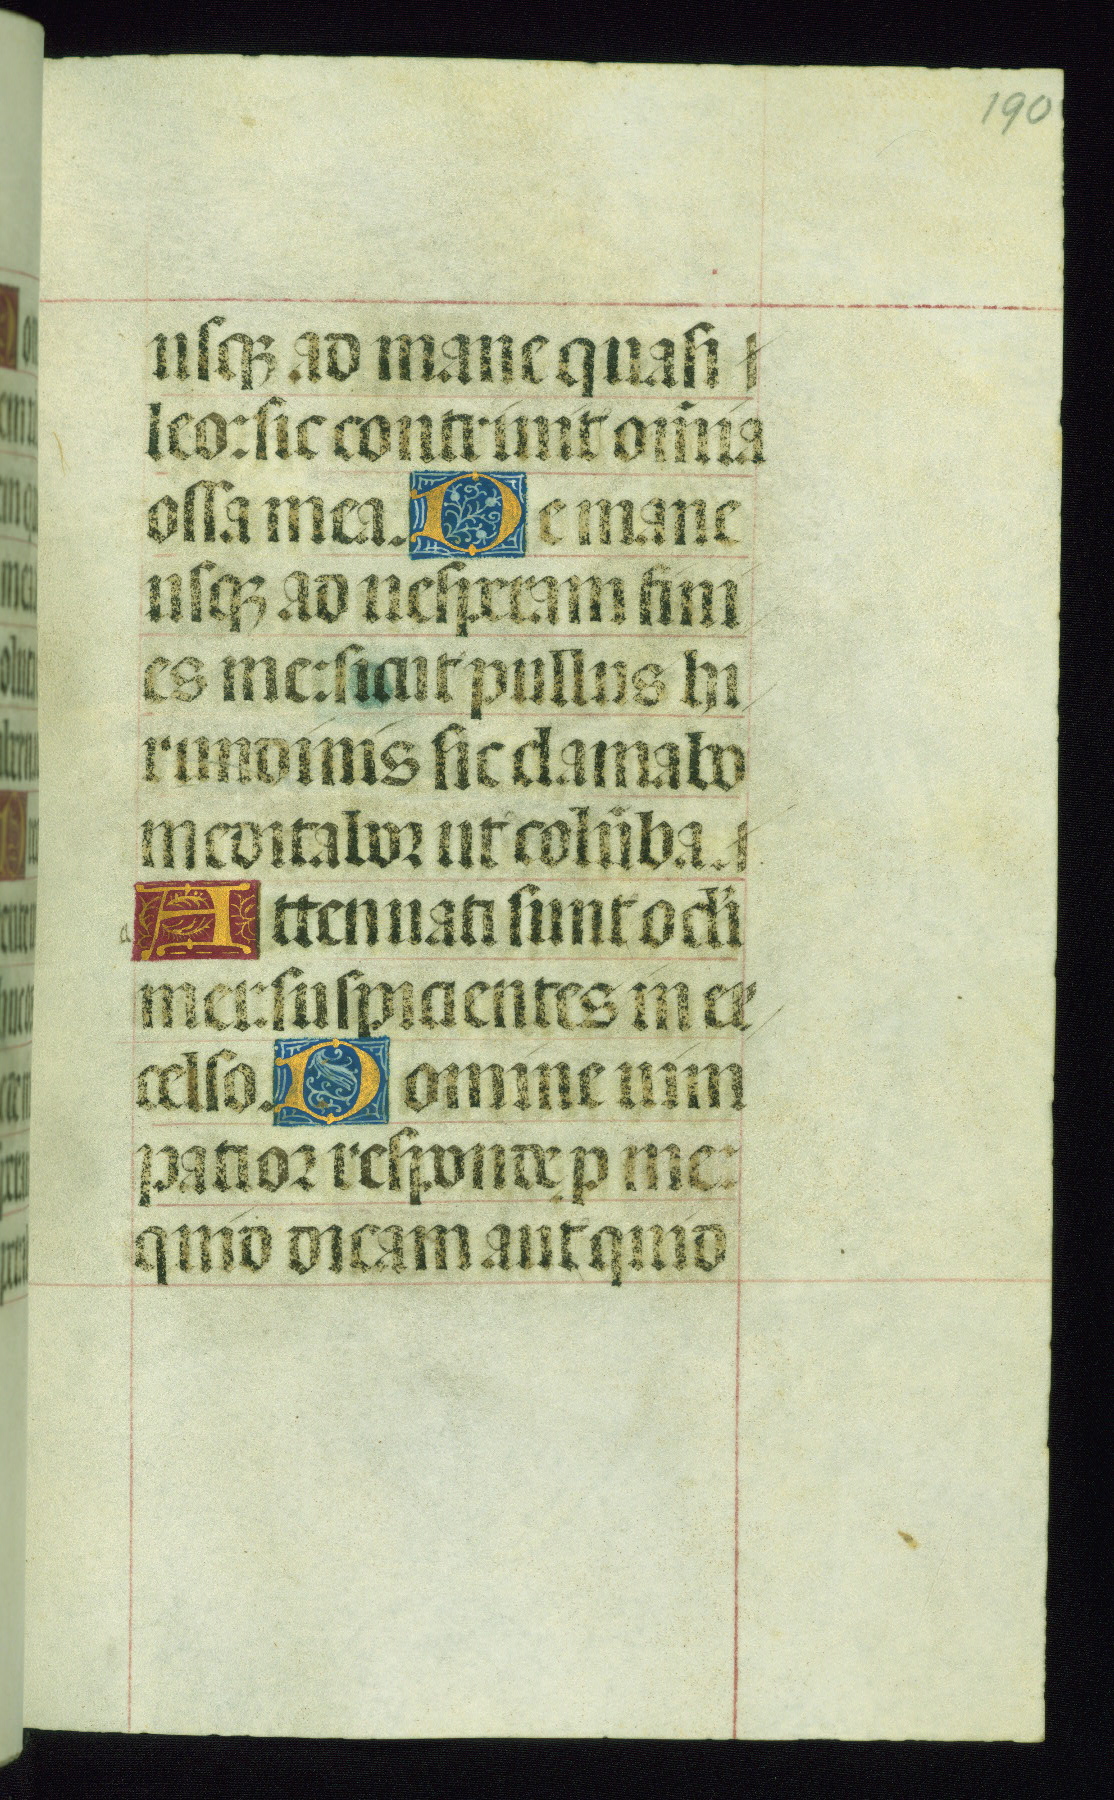 190
usqꝫ ad mane quasi
leo: sic contriuit om̄ia
ossa mea. De mane
usqꝫ ad uesperam fini
es me: sicut pullus hi
rundinis sic clamabo
meditabor ut colūba.
a Attenuati sunt oc̄li
mei: suspicientes in ex
celso. Domine uim
patior responde ꝓ me:
quid dicam aut quid